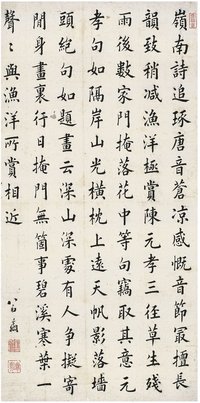 嶺南詩追琢唐音蒼凉感慨音節最擅長
韻致稍減漁洋極賞陳元孝三徑草生殘
雨後數家門掩落花中等句竊取其意元
孝句如隔岸山光橫枕上遠天帆影落墻
頭絕句如題畫云深山深處有人爭擬寄
閒身畫裏行日掩門無箇事碧溪寒葉一
聲聲與漁洋所賞相近